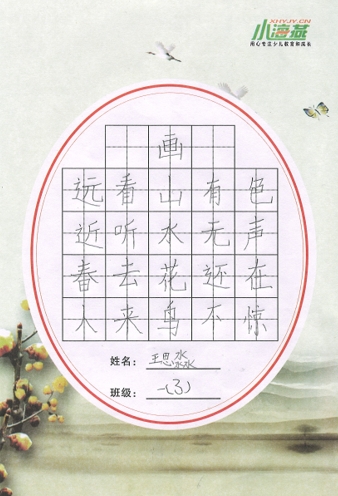 XHYJY.CN
小海燕
用心专注少儿教育和成长
画
远看山有色
近听水无声
春去花还在
人来鸟不惊
姓名：王思淼淼
班级：一(3)